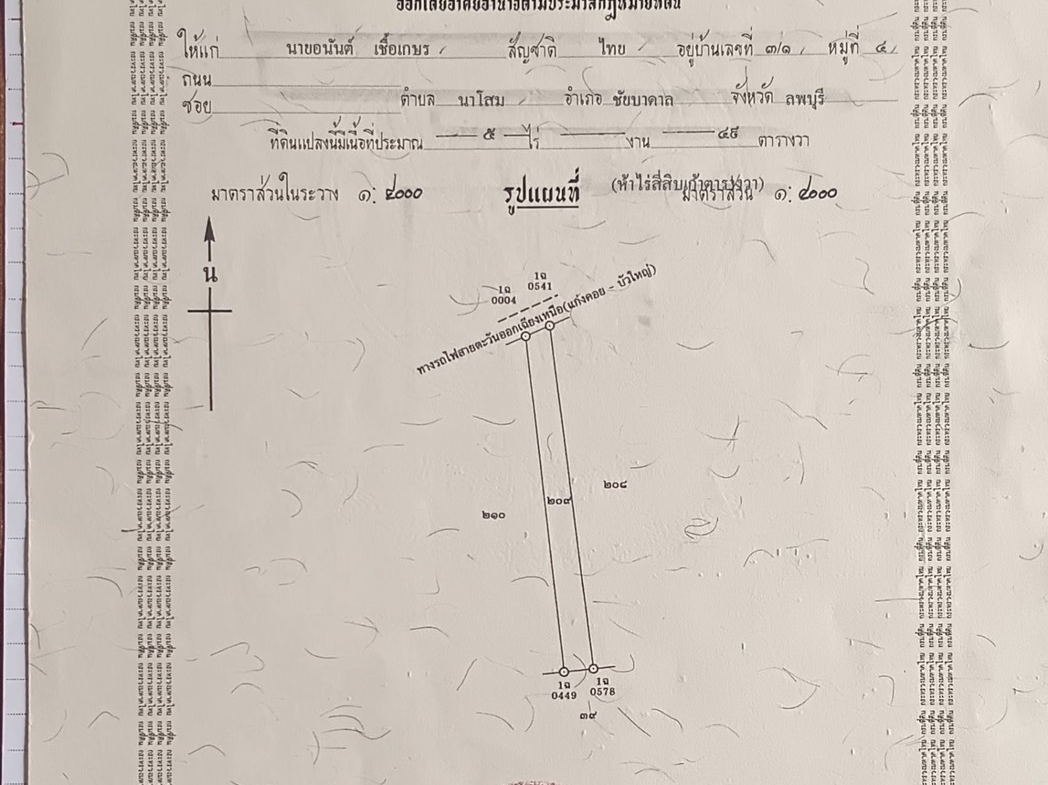 ออกโดยอาศัยอำนาจตามประมวลกฎหมายที่ดิน
ให้แก่ นายอนันต์ เชื้อเกษร สัญชาติ ไทย อยู่บ้านเลขที่ ๓/๑ หมู่ที่ ๔
ถนน
ซอย ตำบล นาโสม อำเภอ ชัยบาดาล จังหวัด ลพบุรี
ที่ดินแปลงนี้มีเนื้อที่ประมาณ ๕ ไร่ งาน ๔๙ ตารางวา
(ห้าไร่สี่สิบเก้าตารางวา)
มาตราส่วนในระวาง ๑: ๔๐๐๐ รูปแผนที่ มาตราส่วน ๑: ๔๐๐๐
น
1ฉ 0004
1ฉ 0541
ทางรถไฟสายตะวันออกเฉียงเหนือ(แก่งคอย - บัวใหญ่)
๒๐๘
๒๐๙
๒๑๐
1ฉ 0449
1ฉ 0578
๓๙